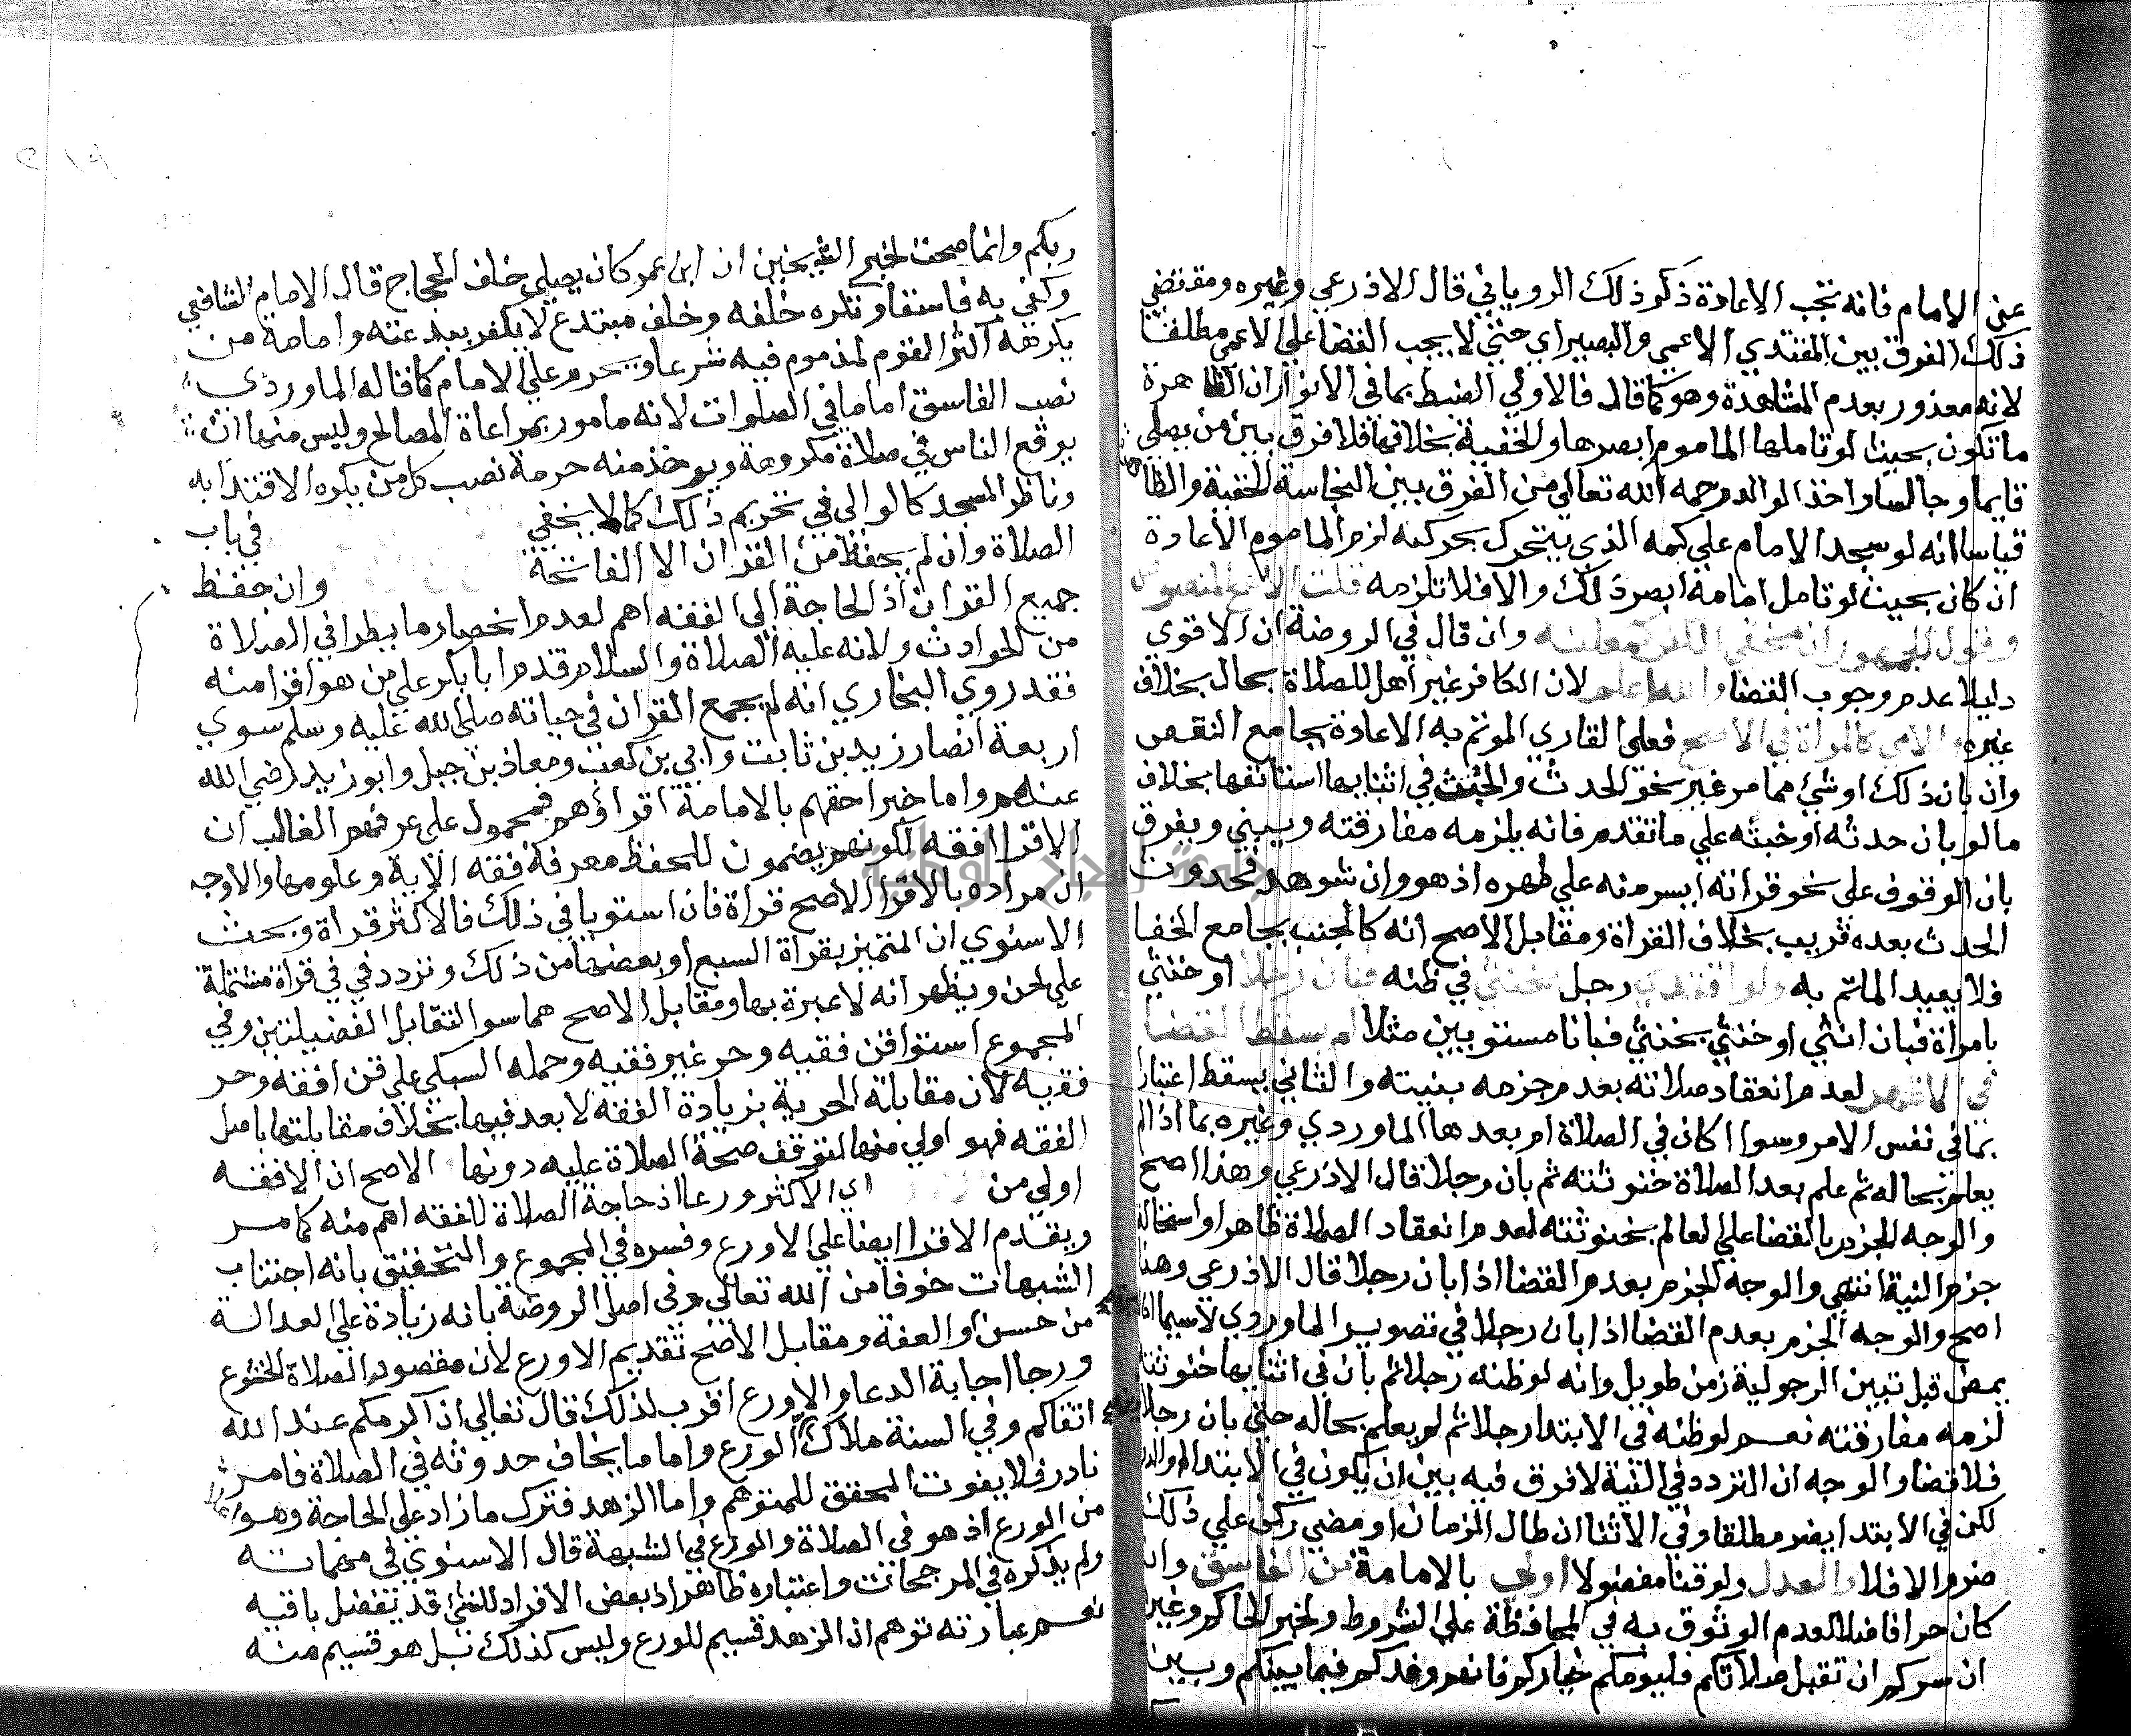 عن الامام فانه تجب الاعادة ذكر ذلك الروياني قال الاذرعي وغيره ومقتضي
ذلك الفرق بين المقتدي الاعمي والبصير اي حتي لا يجب القضا علي الاعمي مطلقا
لانه معذور بعدم المشاهدة وهو كما قال فالاولي الضبط بما في الانوار ان الظاهرة
ما تكون بحيث لو تاملها الماموم ابصرها والخفية بخلافها فلا فرق بين من يصلي
قايما وجالسا واخذ الوالد رحمه الله تعالي من الفرق بين النجاسة الخفية والظا
قياسا انه لو سجد الامام علي كمه الذي يتحرك بحركته لزم الماموم الاعادة
ان كان بحيث لو تامل امامه ابصر ذلك والا فلا تلزمه قلت الاصح المنصوص
وقول الجمهور ان مخفي الكفر كمعلنه وان قال في الروضة ان الاقوي
دليلا عدم وجوب القضا والله اعلم لان الكافر غير اهل للصلاة بحال بخلاف
غيره والامي كالمراة في الاصح فعلي القاري الموتم به الاعادة بجامع النقص
وان بان ذلك او شي مما مر غير نحو الحدث والخبث في اثنايها استانفها بخلاف
ما لو بان حدثه او خبثه علي ما تقدم فانه يلزمه مفارقته ويبني ويفرق
بان الوقوف علي نحو قرانه ايسر منه علي طهره اذ هو وان شوهد فحدوث
الحدث بعده قريب بخلاف القراة ومقابل الاصح انه كالجنب بجامع الخفا
فلا يعيد الماتم به ولو اقتدي رجل بخنثي في ظنه فبان رجلا او خنثي
بامراة فبان انثي او خنثي بخنثي فبانا مستويين مثلا لم يسقط القضا
في الاظهر لعدم انعقاد صلاته بعدم جزمه بنيته والثاني يسقط اعتبارا
بما في نفس الامر وسوا اكان في الصلاة ام بعدها الماوردي وغيره بما اذا لم
يعلم بحاله ثم علم بعد الصلاة خنوثته ثم بان رجلا قال الاذرعي وهذا اصح
والوجه الجزم بالقضا علي العالم بخنوثته لعدم انعقاد الصلاة ظاهرا واستحالة
جزم النية انتهي والوجه الجزم بعدم القضا اذا بان رجلا قال الاذرعي وهذا
اصح والوجه الجزم بعدم القضا اذا بان رجلا في تصوير الماوردي لاسيما اذا لم
يمض قبل تبين الرجولية زمن طويل وانه لو ظنه رجلا ثم بان في اثنايها خنوثته
لزمه مفارقته نعم لو ظنه في الابتدا رجلا ثم لم يعلم بحاله حتي بان رجلا
فلا قضا والوجه ان التردد في النية لا فرق فيه بين ان يكون في الابتدا
لكن في الابتدا يضر مطلقا وفي الاثنا ان طال الزمان او مضي ركن علي ذلك
ضر والا فلا والعدل ولو قنا مفضولا اولي بالامامة من الفاسق وان
كان حرا فاضلا لعدم الوثوق به في المحافظة علي الشروط ولخبر الحاكم وغيره
ان سركم ان تقبل صلاتكم فليومكم خياركم فانهم وفدكم فيما بينكم وبين
ربكم وانما صحت لخبر الشيخين ان ابن عمر كان يصلي خلف الحجاج قال الامام الشافعي
وكفي به فاسقا وتكره خلفه وخلف مبتدع لا يكفر ببدعته وامامة من
يكرهه اكثر القوم لمذموم فيه شرعا ويحرم علي الامام كما قاله الماوردي
نصب الفاسق اماما في الصلوات لانه مامور بمراعاة المصالح وليس منها ان
يوقع الناس في صلاة مكروهة ويوخذ منه حرمة نصب كل من يكره الاقتدا به
وناظر المسجد كالوالي في تحريم ذلك كما لا يخفي في باب
الصلاة وان لم يحفظ من القران الا الفاتحة وان حفظ
جميع القران اذ الحاجة الي الفقه اهم لعدم انحصار ما يطرا في الصلاة
من الحوادث ولانه عليه الصلاة والسلام قدم ابا بكر علي من هو اقرا منه
فقد روي البخاري انه لم يجمع القران في حياته صلي الله عليه وسلم سوي
اربعة انصار زيد بن ثابت وابي بن كعب ومعاذ بن جبل وابو زيد رضي الله
عنهم واما خبر احقهم بالامامة اقراؤهم فمحمول علي عرفهم الغالب ان
الاقرا افقه لكونهم يضمون للحفظ معرفة فقه الاية وعلومها والاوجه
ان مراده بالاقرا الاصح قراة فان استويا في ذلك فالاكثر قراة وبحث
الاسنوي ان المتميز بقراة السبع او بعضها من ذلك وتردد في في قراة مشتملة
علي لحن ويظهر انه لا عبرة بها ومقابل الاصح هما سوا لتقابل الفضيلتين وفي
المجموع استوا قن فقيه وحر غير فقيه وحمله السبكي علي قن افقه وحر
فقيه لان مقابلة الحرية بزيادة الفقه لا بعد فيها بخلاف مقابلتها باصل
الفقه فهو اولي منها لتوقف صحة الصلاة عليه دونها الاصح ان الافقه
اولي من اي الاكثر ورعا اذ حاجة الصلاة للفقه اهم منه كما مر
ويقدم الاقرا ايضا علي الاورع وفسره في المجموع والتحقيق بانه اجتناب
الشبهات خوفا من الله تعالي وفي اصل الروضة بانه زيادة علي العدالة
من حسن والعفة ومقابل الاصح تقديم الاورع لان مقصود الصلاة الخشوع
ورجا اجابة الدعا والاورع اقرب لذلك قال تعالي ان اكرمكم عند الله
اتقاكم وفي السنة ملاك الورع واما ما يخاف حدوثه في الصلاة فامر
نادر فلا يفوت المحقق للمتوهم واما الزهد فترك ما زاد علي الحاجة وهو اعلا
من الورع اذ هو في الصلاة والورع في الشبهة قال الاسنوي في مهماته
ولم يذكره في المرجحات واعتباره ظاهر اذ بعض الافراد للشي قد تفضل باقيه
نعم عبارته توهم ان الزهد قسيم للورع وليس كذلك بل هو قسيم منه